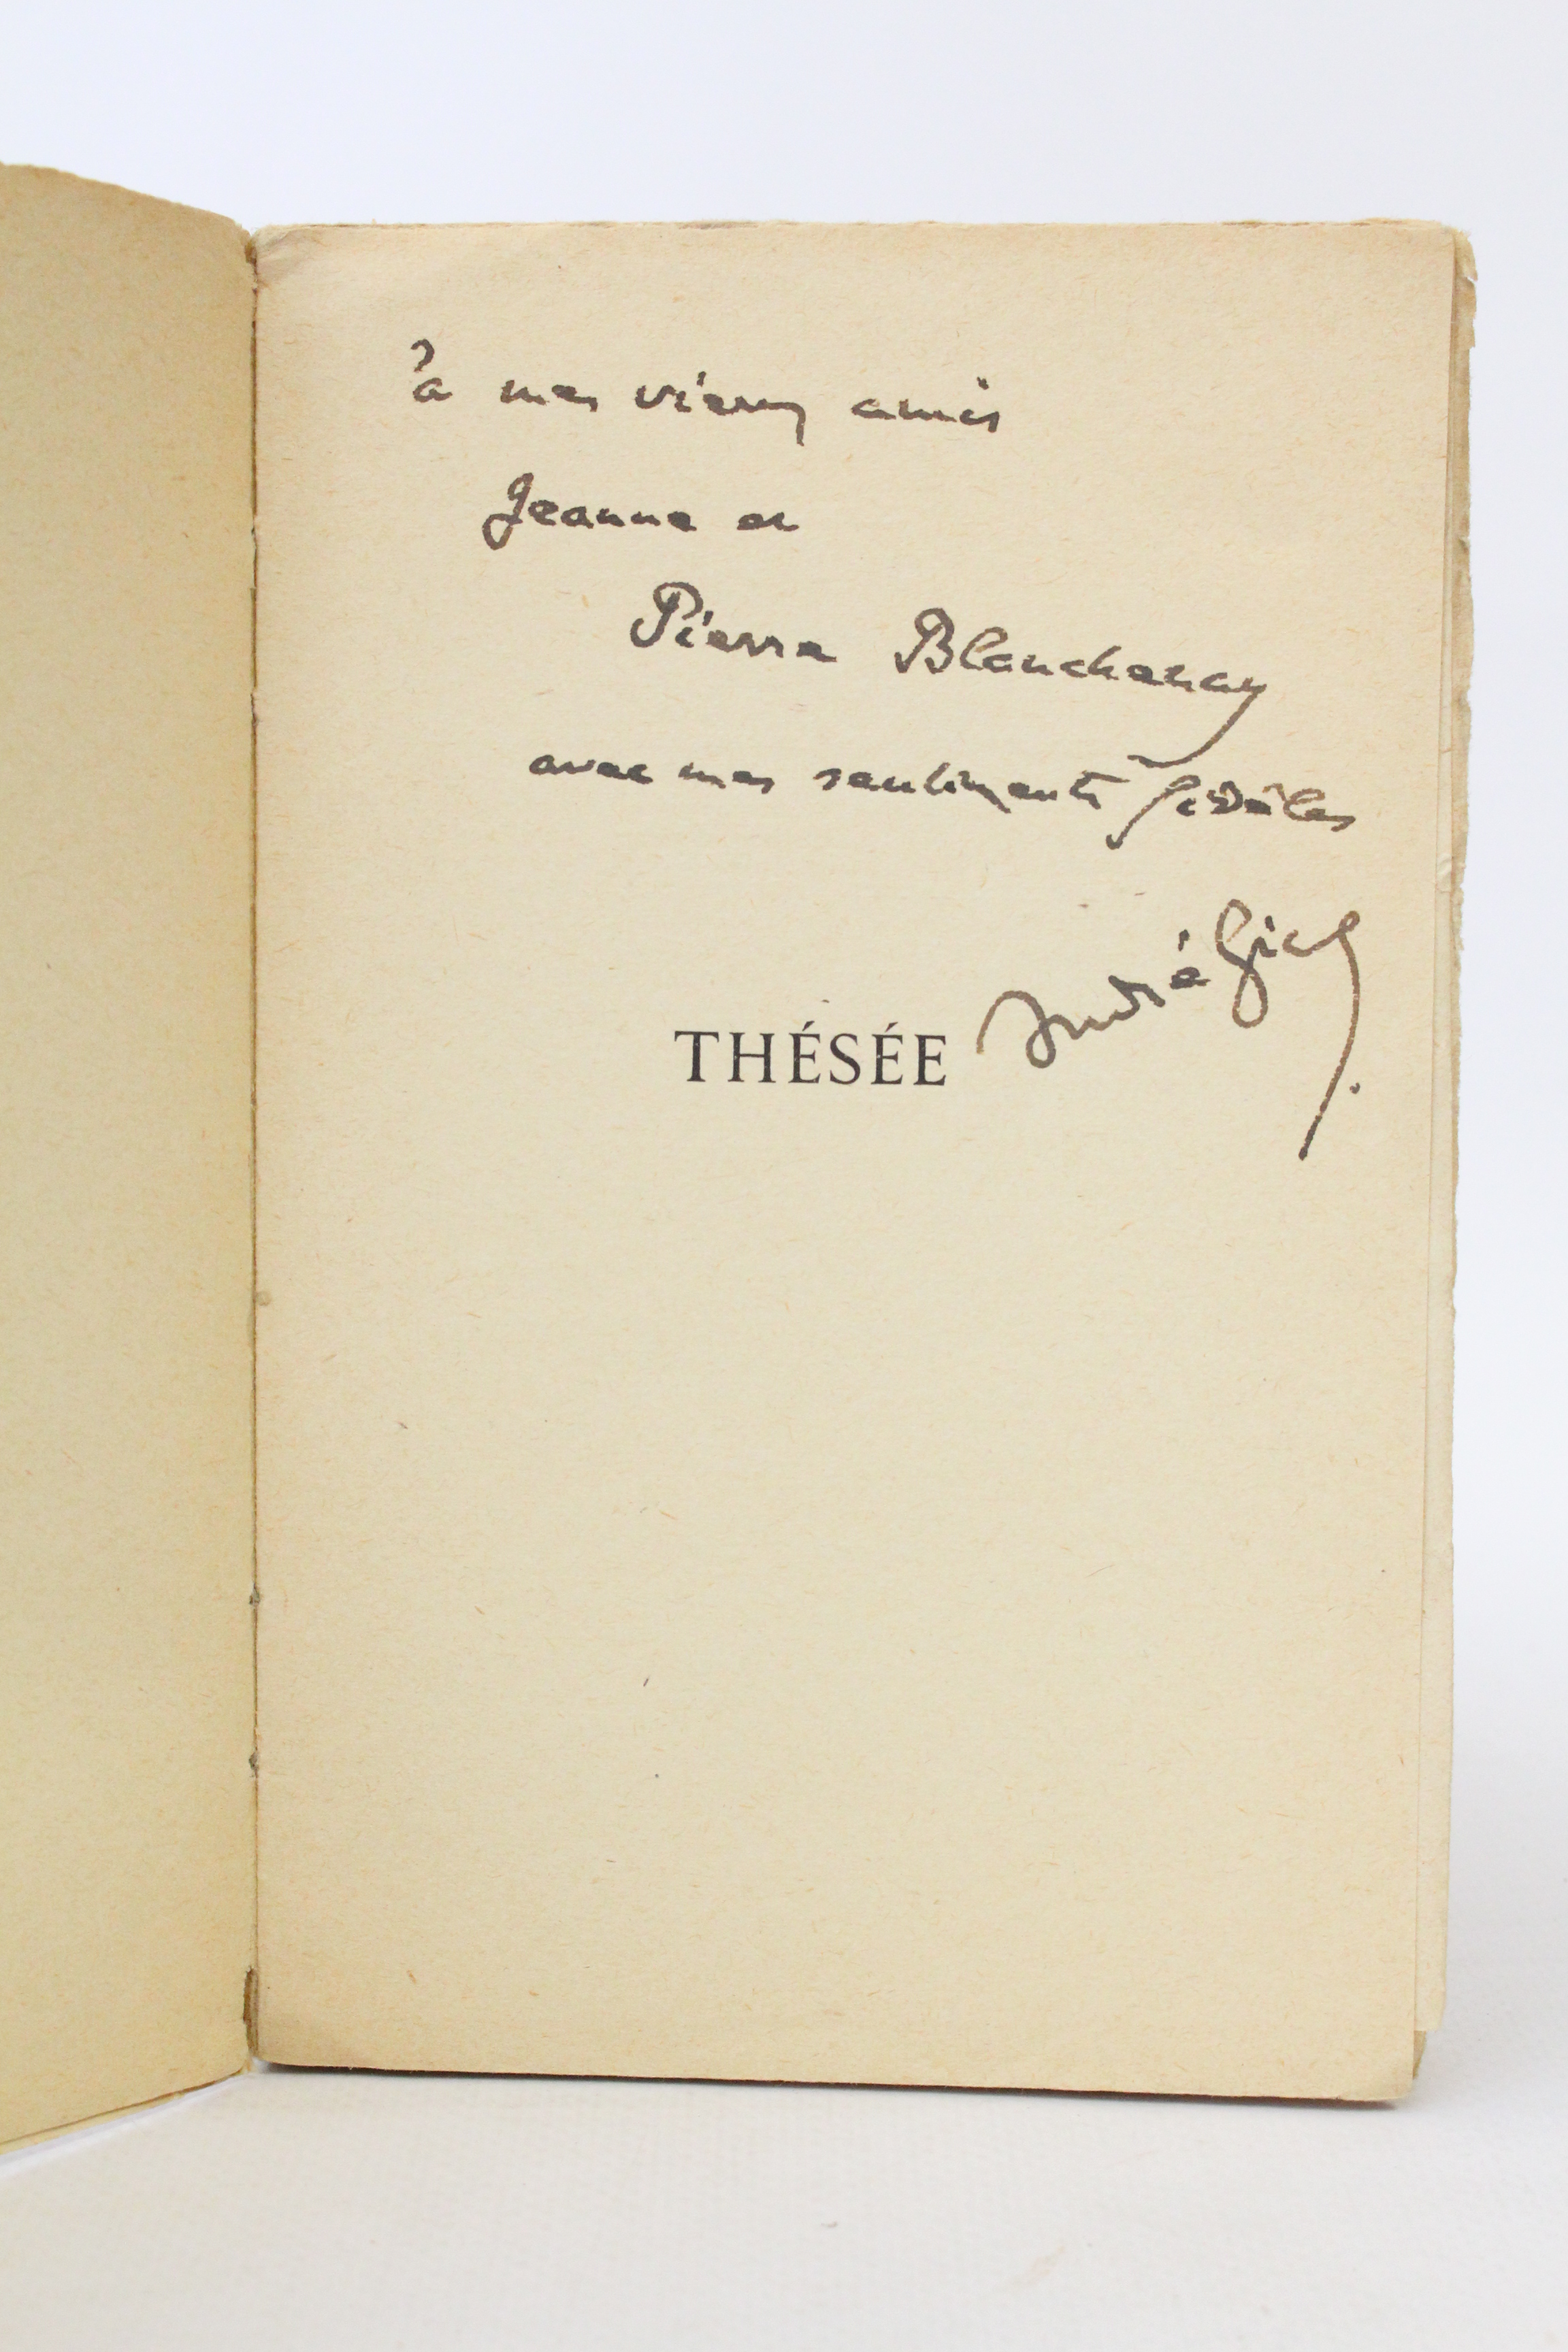 à mes vieux amis
Jeanne et
Pierre Blanchenay
avec mes sentiments fidèles
André Gide
THÉSÉE